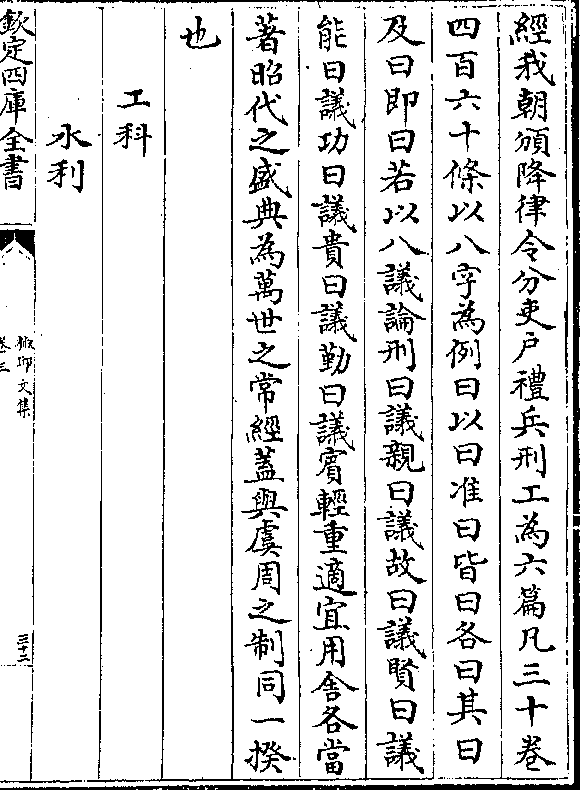 經我朝頒降律令分吏戶禮兵刑工為六篇凡三十卷
四百六十條以八字為例曰以曰准曰皆曰各曰其曰
及曰即曰若以八議論刑曰議親曰議故曰議賢曰議
能曰議功曰議貴曰議勤曰議賓輕重適宜用舍各當
著昭代之盛典為萬世之常經蓋與虞周之制同一揆
也
工科
水利
欽定四庫全書
卷三
三十二